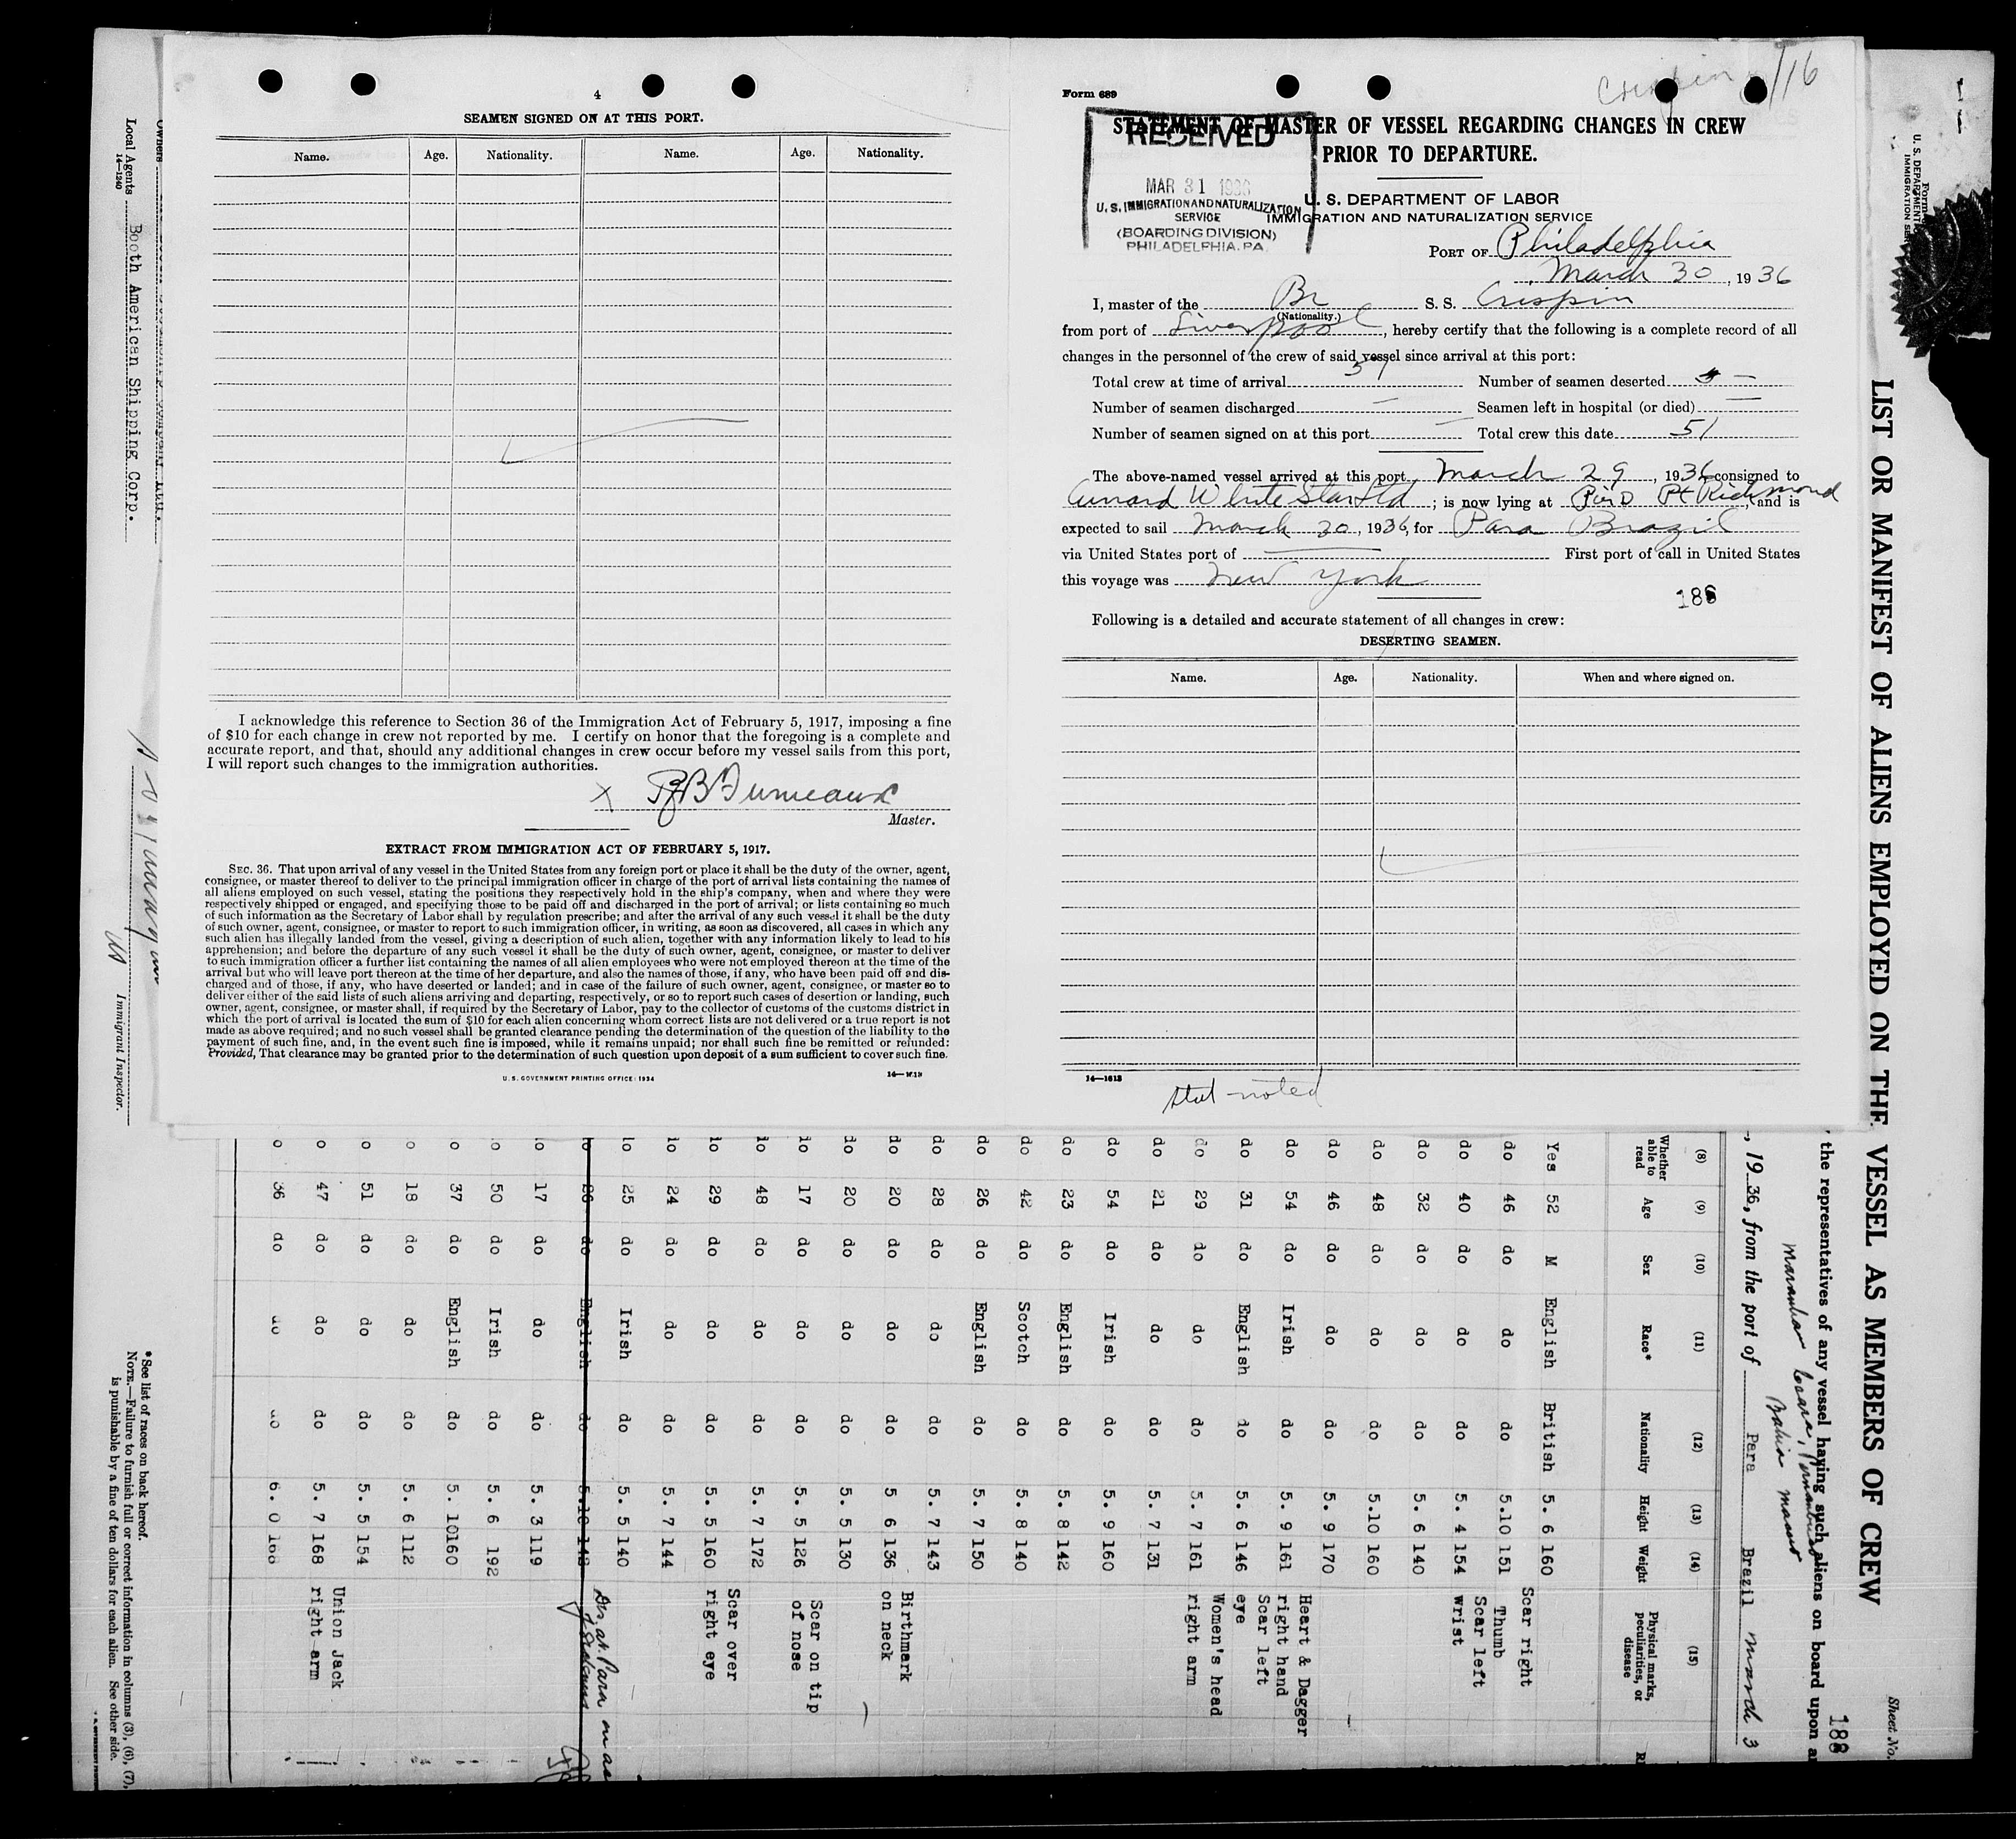 4
SEAMEN SIGNED ON AT THIS PORT.
Name. Age. Nationality. Name. Age. Nationality.
I acknowledge this reference to Section 36 of the Immigration Act of February 5, 1917, imposing a fine
of $10 for each change in crew not reported by me. I certify on honor that the foregoing is a complete and
accurate report, and that, should any additional changes in crew occur before my vessel sails from this port,
I will report such changes to the immigration authorities.
X
Master.
EXTRACT FROM IMMIGRATION ACT OF FEBRUARY 5, 1917.
SEC. 36. That upon arrival of any vessel in the United States from any foreign port or place it shall be the duty of the owner, agent,
consignee, or master thereof to deliver to the principal immigration officer in charge of the port of arrival lists containing the names of
all aliens employed on such vessel, stating the positions they respectively hold in the ship's company, when and where they were
respectively shipped or engaged, and specifying those to be paid off and discharged in the port of arrival; or lists containing so much
of such information as the Secretary of Labor shall by regulation prescribe; and after the arrival of any such vessel it shall be the duty
of such owner, agent, consignee, or master to report to such immigration officer, in writing, as soon as discovered, all cases in which any
such alien has illegally landed from the vessel, giving a description of such alien, together with any information likely to lead to his
apprehension; and before the departure of any such vessel it shall be the duty of such owner, agent, consignee, or master to deliver
to such immigration officer a further list containing the names of all alien employees who were not employed thereon at the time of the
arrival but who will leave port thereon at the time of her departure, and also the names of those, if any, who have been paid off and dis-
charged and of those, if any, who have deserted or landed; and in case of the failure of such owner, agent, consignee, or master so to
deliver either of the said lists of such aliens arriving and departing, respectively, or so to report such cases of desertion or landing, such
owner, agent, consignee, or master shall, if required by the Secretary of Labor, pay to the collector of customs of the customs district in
which the port of arrival is located the sum of $10 for each alien concerning whom correct lists are not delivered or a true report is not
made as above required; and no such vessel shall be granted clearance pending the determination of the question of the liability to the
payment of such fine, and, in the event such fine is imposed, while it remains unpaid; nor shall such fine be remitted or refunded:
Provided, That clearance may be granted prior to the determination of such question upon deposit of a sum sufficient to cover such fine.
U. S. GOVERNMENT PRINTING OFFICE: 1934
Form 689
Crispin /16
STATEMENT OF MASTER OF VESSEL REGARDING CHANGES IN CREW
PRIOR TO DEPARTURE.
RECEIVED
MAR 31 1936
U. S. IMMIGRATION AND NATURALIZATION
SERVICE
(BOARDING DIVISION)
PHILADELPHIA, PA.
U. S. DEPARTMENT OF LABOR
IMMIGRATION AND NATURALIZATION SERVICE
PORT OF Philadelphia
March 30, 1936
I, master of the Br S. S. Crispin
(Nationality.)
from port of Liverpool, hereby certify that the following is a complete record of all
changes in the personnel of the crew of said vessel since arrival at this port:
Total crew at time of arrival 51 Number of seamen deserted —
Number of seamen discharged — Seamen left in hospital (or died) —
Number of seamen signed on at this port — Total crew this date 51
The above-named vessel arrived at this port March 29, 1936 consigned to
Cunard White Star Ltd; is now lying at Pier D Pt Richmond, and is
expected to sail March 30, 1936, for Para Brazil
via United States port of — First port of call in United States
this voyage was New York
188
Following is a detailed and accurate statement of all changes in crew:
DESERTING SEAMEN.
Name. Age. Nationality. When and where signed on.
14—1613
stat noted
LIST OR MANIFEST OF ALIENS EMPLOYED ON THE VESSEL AS MEMBERS OF CREW
Sheet No.
188
U. S. DEPARTMENT
IMMIGRATION SERV
the representatives of any vessel having such aliens on board upon
, 1936, from the port of Para Brazil March 3
(8) (9) (10) (11) (12) (13) (14) (15)
Whether able to read Age Sex Race* Nationality Height Weight Physical marks, peculiarities, or disease
Yes 52 M English British 5. 6 160 Scar right
do 46 do do do 5.10 151 Thumb
do 40 do do do 5. 4 154 Scar left wrist
do 32 do do do 5. 6 140
do 48 do do do 5.10 160
do 46 do do do 5. 9 170
do 54 do Irish do 5. 9 161 Heart & Dagger right hand
do 31 do English do 5. 6 146 Scar left eye
do 29 do do do 5. 7 161 Women's head right arm
do 21 do do do 5. 7 131
do 54 do Irish do 5. 9 160
do 23 do English do 5. 8 142
do 42 do Scotch do 5. 8 140
do 26 do English do 5. 7 150
do 28 do do do 5. 7 143
do 20 do do do 5 6 136 Birthmark on neck
do 20 do do do 5. 5 130
do 17 do do do 5. 5 126 Scar on tip of nose
do 48 do do do 5. 7 172
do 29 do do do 5. 5 160 Scar over right eye
do 24 do do do 5. 7 144
do 25 do Irish do 5. 5 140
do 26 do English do 5.10 142
do 17 do do do 5. 3 119
o 50 do Irish do 5. 6 192
o 37 do English do 5. 10160
o 18 do do do 5. 6 112
o 51 do do do 5. 5 154
o 47 do do do 5. 7 168 Union Jack right arm
o 36 do do do 6. 0 168
Local Agents Booth American Shipping Corp.
14—1240
Immigrant Inspector.
*See list of races on back hereof.
NOTE.—Failure to furnish full or correct information in columns (3), (6), (7),
is punishable by a fine of ten dollars for each alien. See other side.